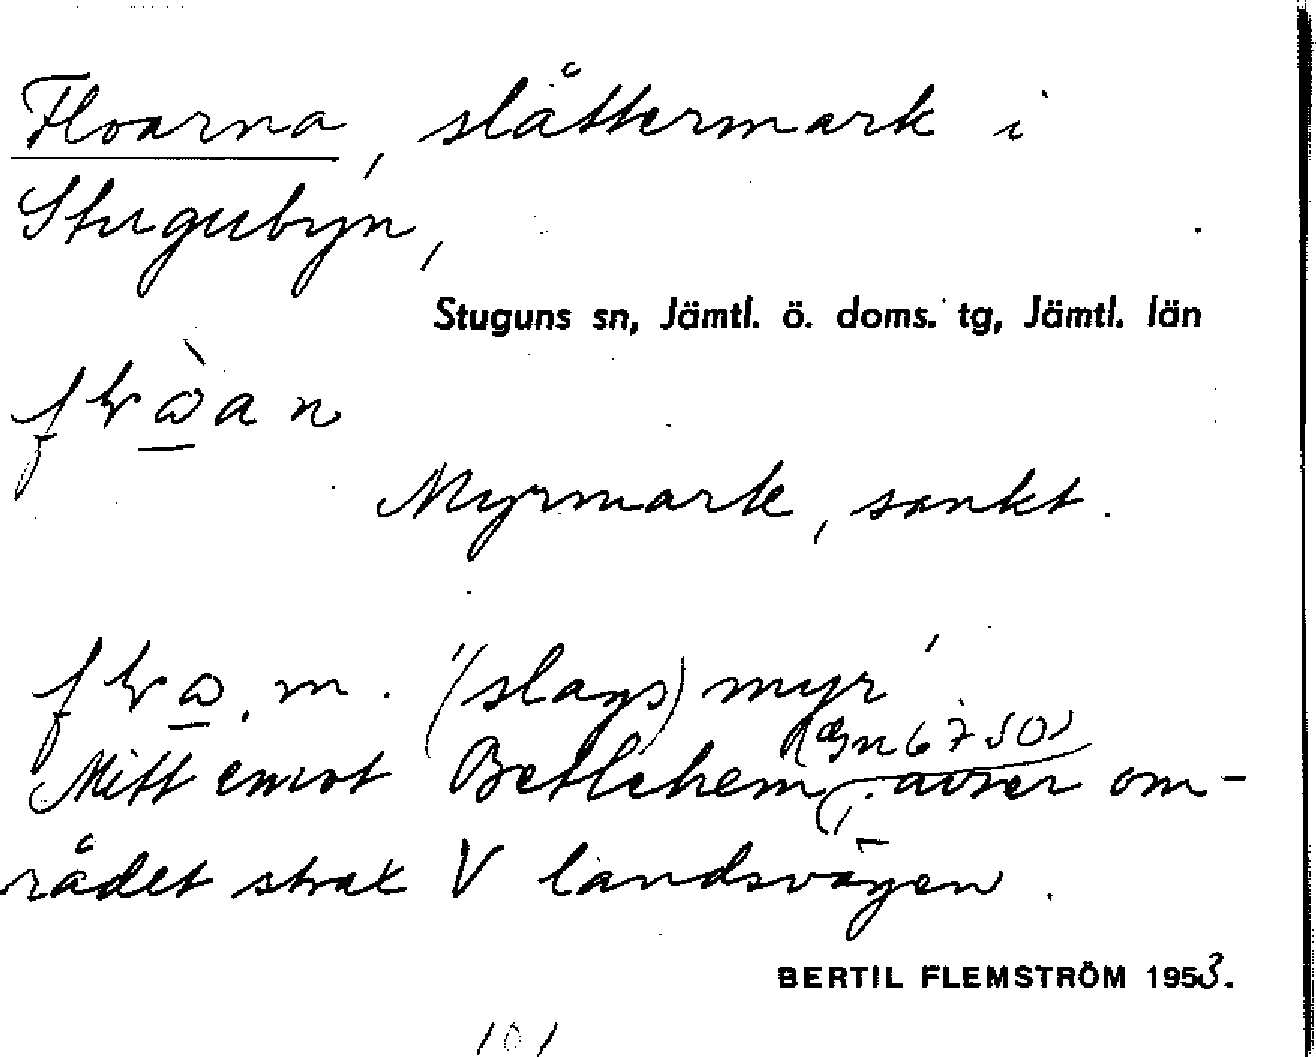 Floarna, slåttermark i
Stugubyn,
Stuguns sn, Jämtl. ö. doms. tg, Jämtl. län
Myrmark, sankt.
m. '(slags) myr'
(Gn 6750)
Mitt emot Betlehem, avser om-
rådet strax V landsvägen.
BERTIL FLEMSTRÖM 1953.
101